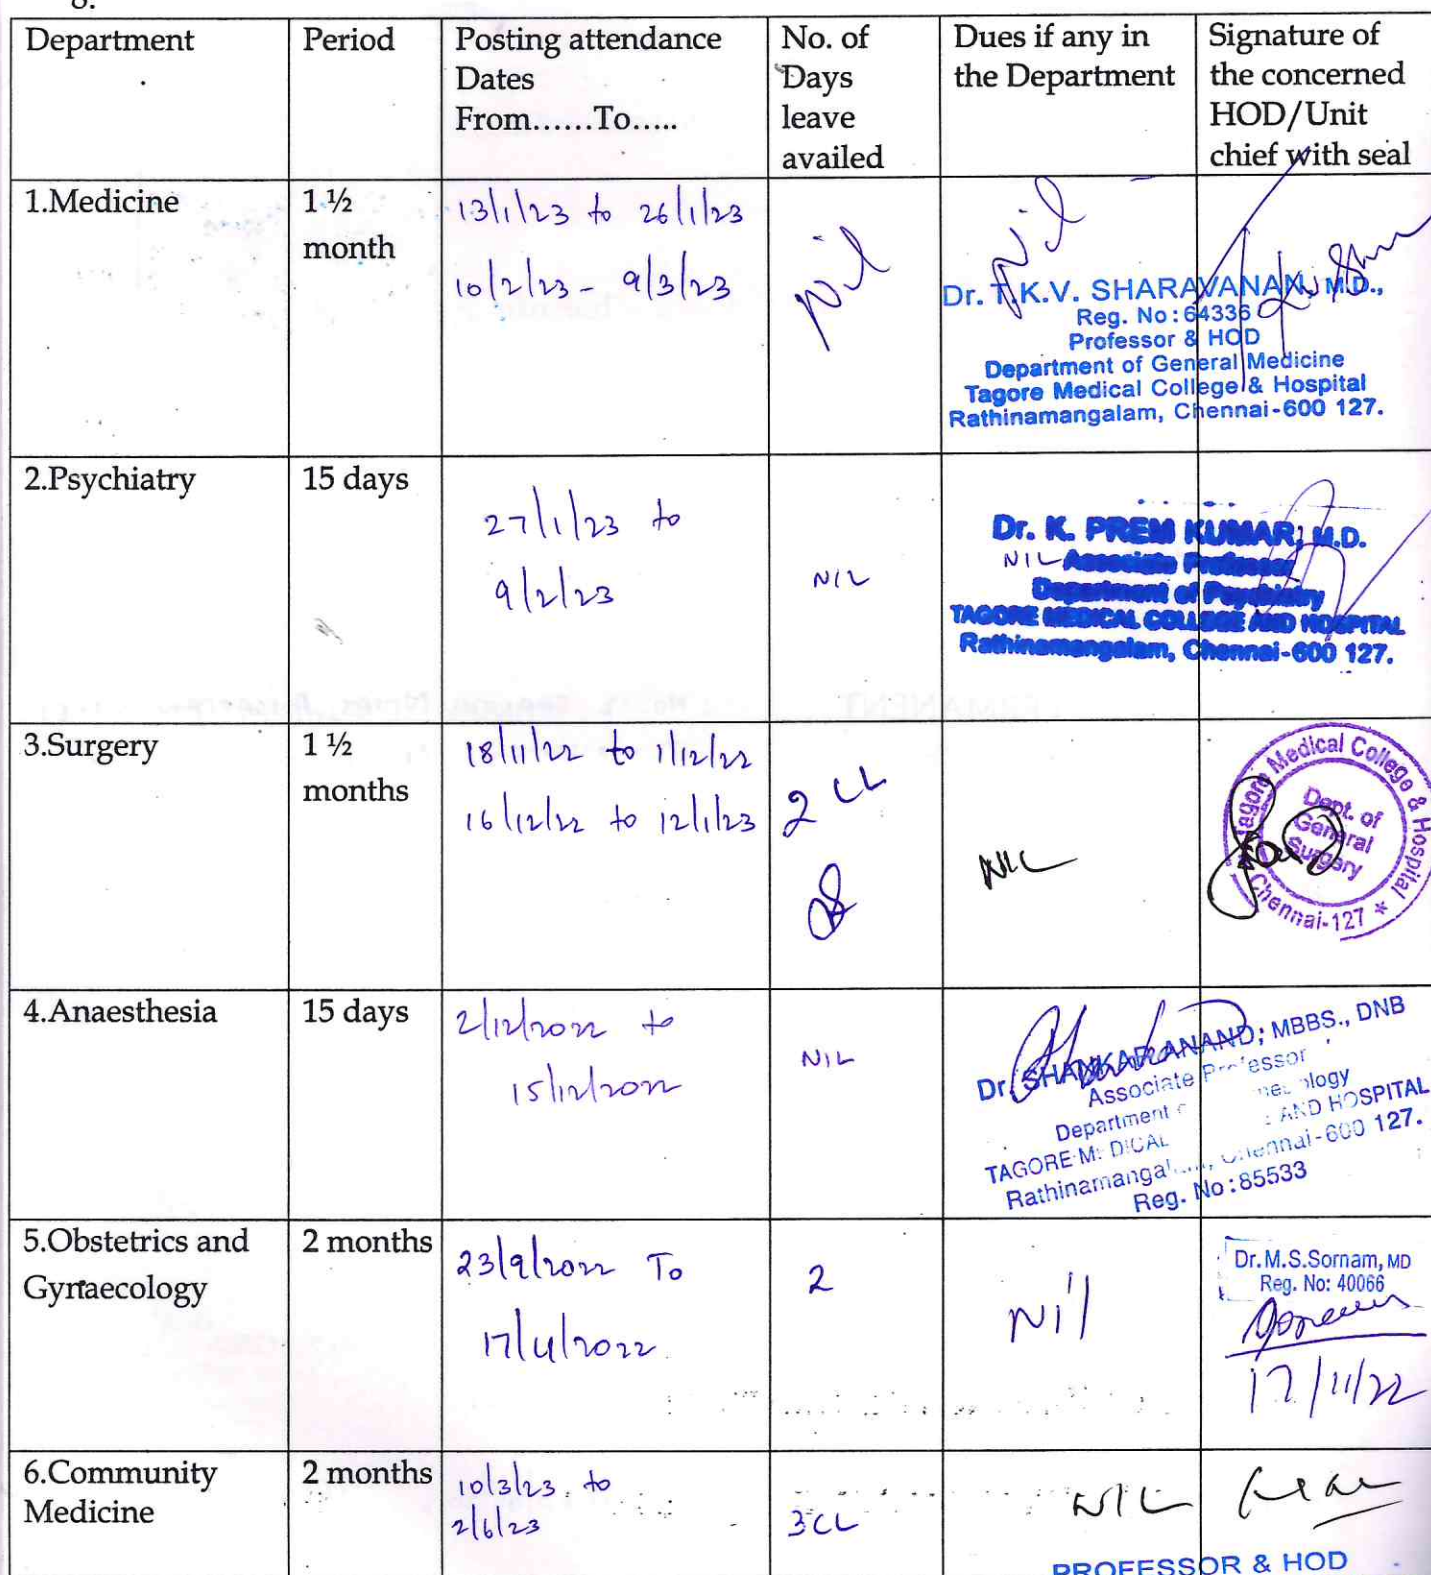 8.
Department
Period
Posting attendance
Dates
From......To.....
No. of
Days
leave
availed
Dues if any in
the Department
Signature of
the concerned
HOD/Unit
chief with seal
1.Medicine
1 ½
month
13/1/23 to 26/1/23
10/2/23 - 9/3/23
Nil
Nil
Dr. T.K.V. SHARAVANAN, M.D.,
Reg. No: 64336
Professor & HOD
Department of General Medicine
Tagore Medical College & Hospital
Rathinamangalam, Chennai-600 127.
2.Psychiatry
15 days
27/1/23 to
9/2/23
NIL
NIL
Dr. K. PREM KUMAR, M.D.
Associate Professor
Department of Psychiatry
TAGORE MEDICAL COLLEGE AND HOSPITAL
Rathinamangalam, Chennai-600 127.
3.Surgery
1 ½
months
18/11/22 to 1/12/22
16/12/22 to 12/1/23
2 CL
NIL
Tagore Medical College & Hospital
Dept. of
General
Surgery
Chennai-127 *
4.Anaesthesia
15 days
2/12/2022 to
15/12/2022
NIL
Dr. SHANKAR ANAND; MBBS., DNB
Associate Professor
Department
TAGORE MEDICAL AND HOSPITAL
Rathinamangalam, Chennai-600 127.
Reg. No:85533
5.Obstetrics and
Gynaecology
2 months
23/9/2022 To
17/11/2022
2
Nil
Dr.M.S.Sornam, MD
Reg. No: 40066
17/11/22
6.Community
Medicine
2 months
10/3/23 to
2/6/23
3 CL
NIL
PROFESSOR & HOD